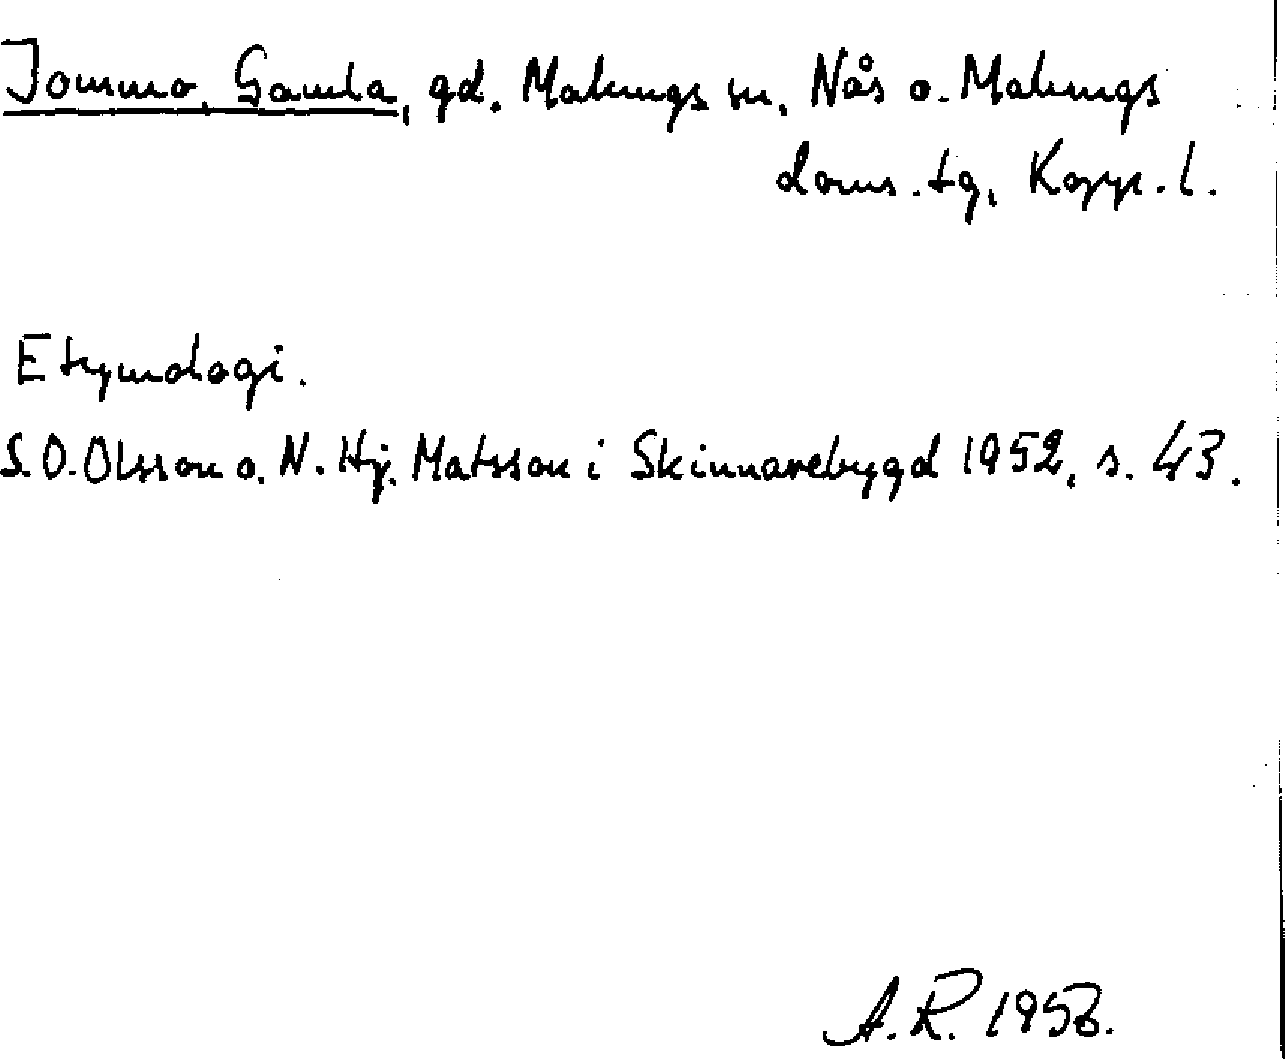 Jommo, Gamla, gd. Malungs sn, Nås o. Malungs
doms. tg, Kopp. l.
Etymologi.
S.O. Olsson o. N. Hj. Matsson i Skinnarebygd 1952, s. 43.
A.R. 1953.